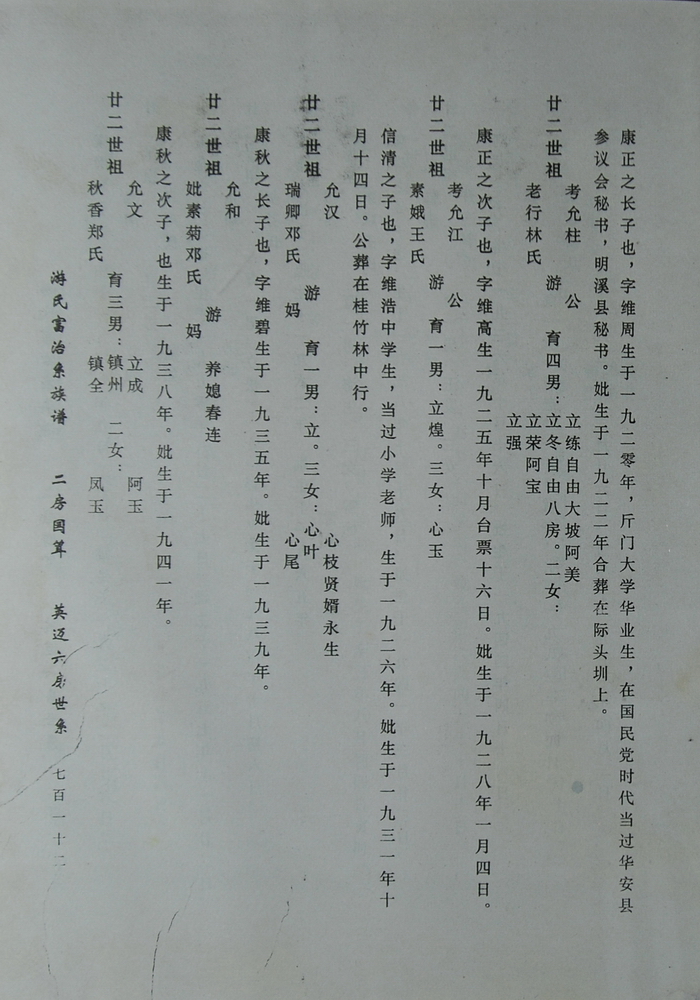 康正之长子也，字维周生于一九二零年，斤门大学华业生，在国民党时代当过华安县
参议会秘书，明溪县秘书。妣生于一九二二年合葬在际头圳上。
考允柱 公 立练自由大坡阿美
廿二世祖 游 育四男：立冬自由八房。二女：
老行林氏 立荣阿宝
立强
康正之次子也，字维高生一九二五年十月台票十六日。妣生于一九二八年一月四日。
考允江 公
廿二世祖 游 育一男：立煌。三女：心玉
素娥王氏
信清之子也，字维浩中学生，当过小学老师，生于一九二六年。妣生于一九三一年十
月十四日。公葬在桂竹林中行。
允汉 心枝贤婿永生
廿二世祖 游 育一男：立。三女：心叶
瑞卿邓氏 妈 心尾
康秋之长子也，字维碧生于一九三五年。妣生于一九三九年。
允和
廿二世祖 游 养媳春连
妣素菊邓氏 妈
康秋之次子，也生于一九三八年。妣生于一九四一年。
允文 立成 阿玉
廿二世祖 育三男：镇州 二女：
秋香郑氏 镇全 凤玉
游氏富治系族谱 二房国算 英迈六房世系 七百一十二